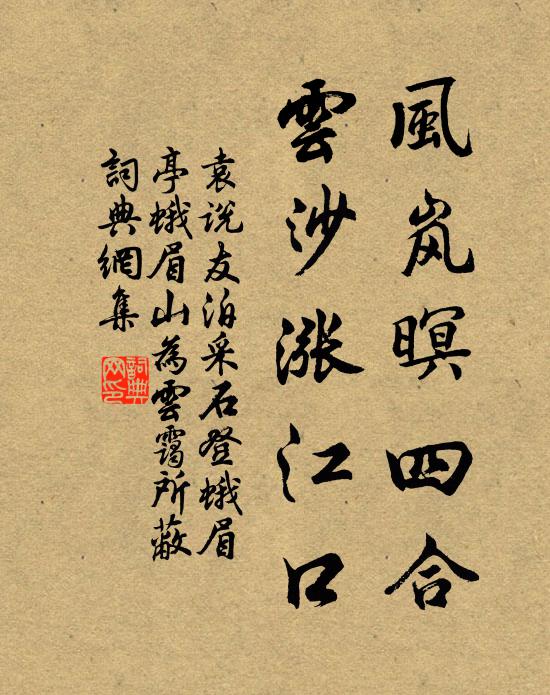 風岚暝四合
雲沙漲江口
袁说友泊采石登蛾眉
亭蛾眉山為雲靄所蔽
詞典網集
詞典
网印